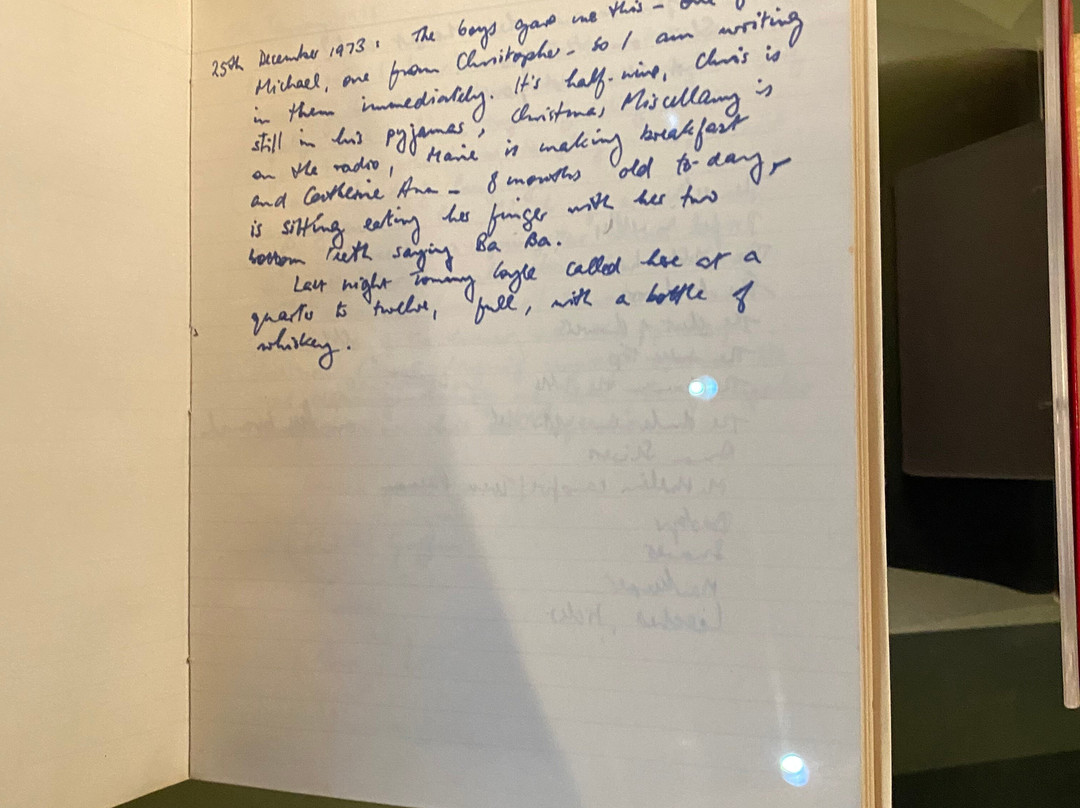 25th December 1973: The boys gave me this – one f
Michael, one from Christopher – so I am writing
in them immediately. It's half-nine, Chris is
still in his pyjamas, Christmas Miscellany is
on the radio, Marie is making breakfast
and Catherine Ann – 8 months old to-day,
is sitting eating her finger with her two
bottom teeth saying Ba Ba.
Last night Tommy called here at a
quarter to twelve, full, with a bottle of
whiskey.